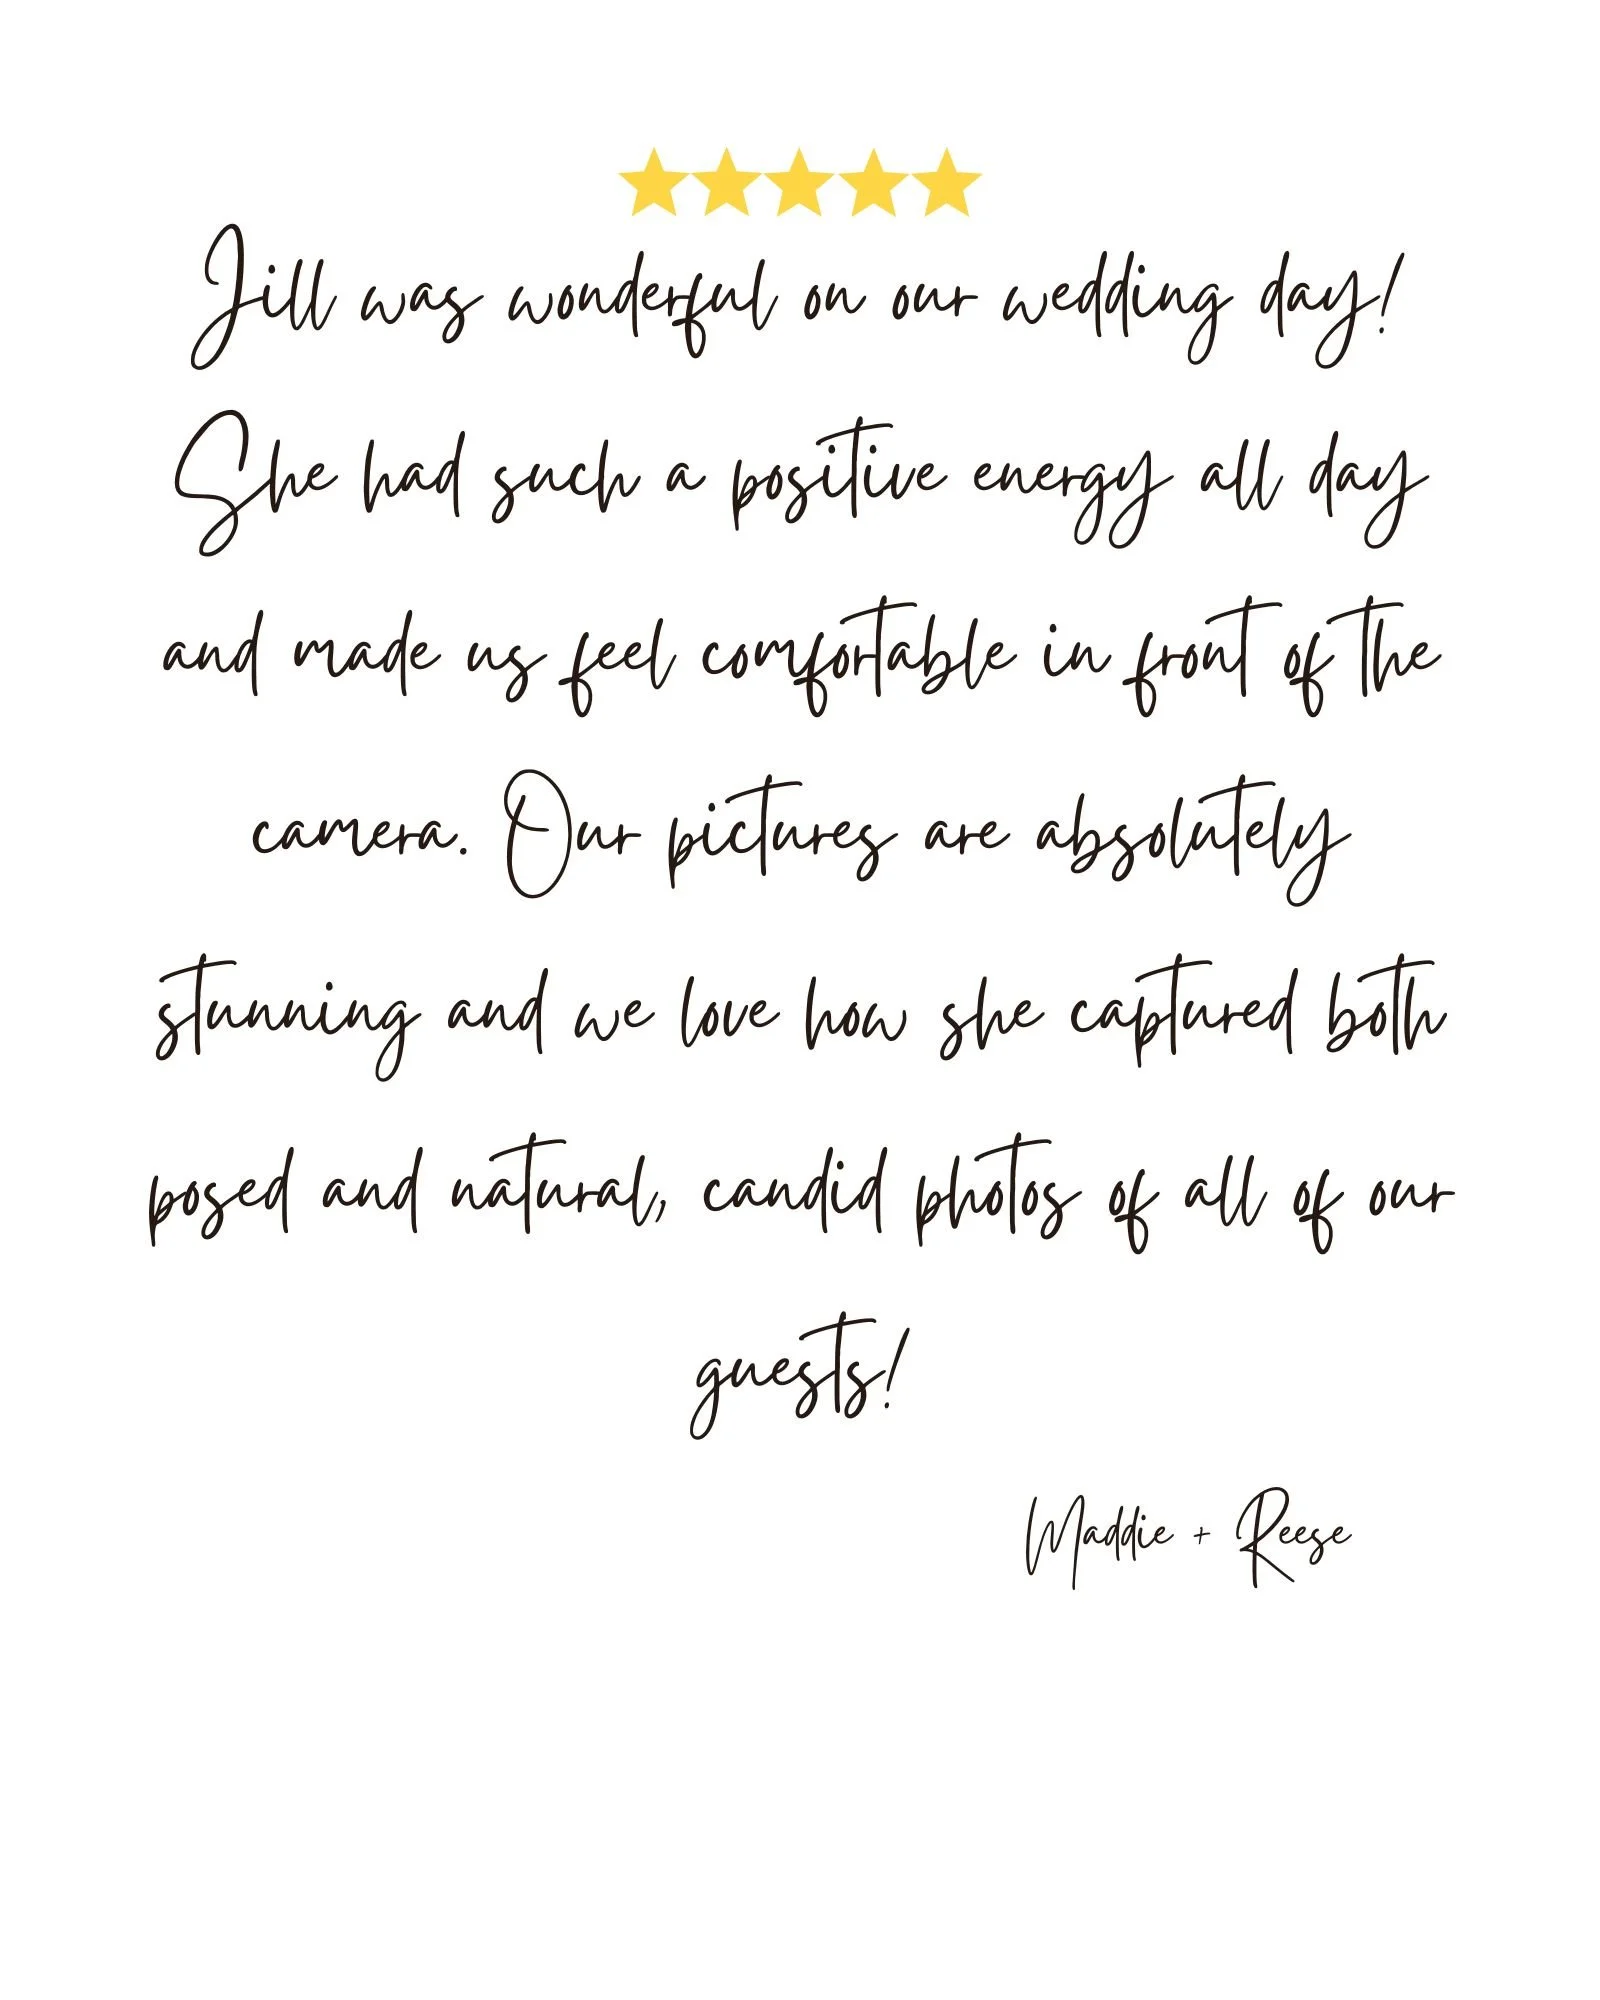 Jill was wonderful on our wedding day!
She had such a positive energy all day
and made us feel comfortable in front of the
camera. Our pictures are absolutely
stunning and we love how she captured both
posed and natural, candid photos of all of our
guests!
Maddie + Reese